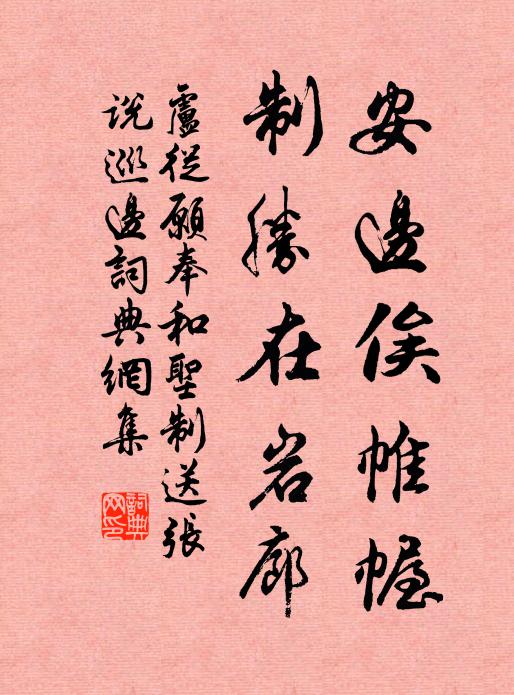 安邊俟帷幄
制勝在岩廊
盧從願奉和聖制送張
說巡邊詞典網集
詞典网印